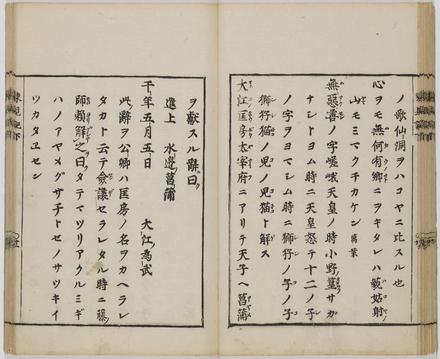 ノ歌仙洞ヲハコヤニ比スル也
心ヲモ無何有郷ニヲキタレハ藐姑射
山モミマクチカケン 萬葉
無惡善ノ字嵯峨天皇ノ時小野篁サガ
ナシトヨム時ニ天皇怒テ十二ノ子
ノ字ヲヨマシム時ニ ノ子ノ子
猫ノ児ノ児猫ト解ス
大江匡房太宰府ニアリテ天子ヘ菖蒲
ヲ獻スル辭曰
進上 水邊菖蒲
千年五月五日 大江為武
此辭ヲ公卿ハ匡房ノ名ヲカヘラレ
タカト云テ僉議セラレタル時ニ藤
師頼解之曰タテマツリアクルミギ
ハノアヤメグサチトセノサツキイ
ツカタヱセン